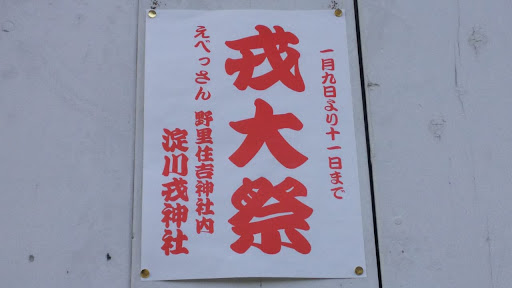 一月九日より十一日まで
戎大祭
えべっさん 野里住吉神社内
淀川戎神社